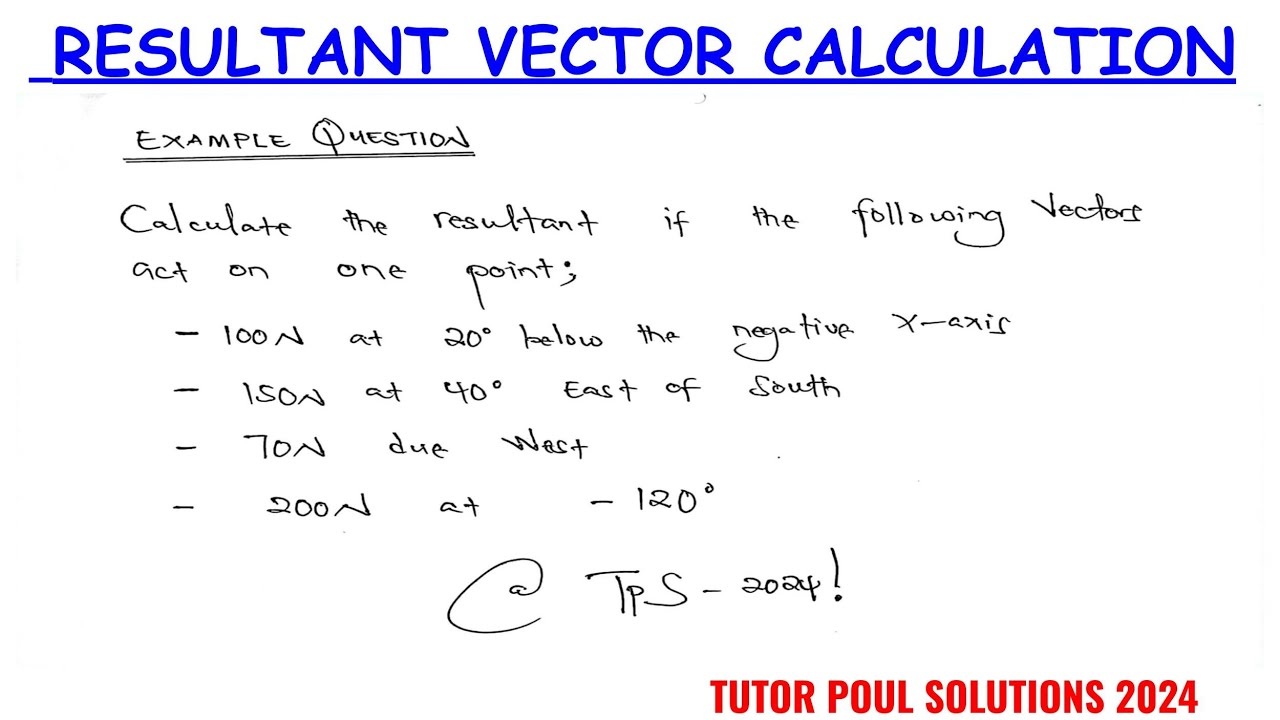 RESULTANT VECTOR CALCULATION
EXAMPLE QUESTION
Calculate the resultant if the following Vectors
act on one point;
- 100N at 20° below the negative X-axis
- 150N at 40° East of South
- 70N due West
- 200N at -120°
@ TPS-2024!
TUTOR POUL SOLUTIONS 2024